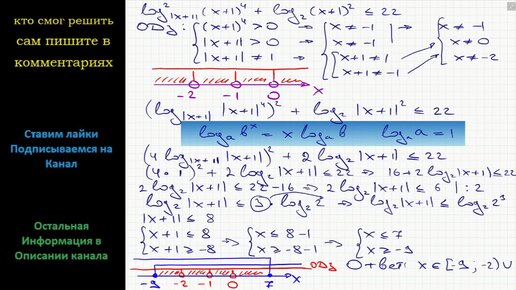 кто смог решить
сам пишите в
комментариях
Ставим лайки
Подписываемся на
Канал
Остальная
Информация в
Описании канала
log²_|x+1| (x+1)⁴ + log₂ (x+1)² ≤ 22
ОДЗ: { (x+1)⁴ > 0 → { x ≠ -1 { x ≠ -1
|x+1| > 0 x ≠ -1 x ≠ 0
|x+1| ≠ 1 x+1 ≠ 1 x ≠ -2
x+1 ≠ -1
-2 -1 0 x
(log_|x+1| |x+1|⁴)² + log₂ |x+1|² ≤ 22
log_a bˣ = x log_a b log_a a = 1
(4 log_|x+1| |x+1|)² + 2 log₂ |x+1| ≤ 22
(4·1)² + 2 log₂ |x+1| ≤ 22 → 16 + 2 log₂ |x+1| ≤ 22
2 log₂ |x+1| ≤ 22 - 16 → 2 log₂ |x+1| ≤ 6 | : 2
log₂ |x+1| ≤ 3 · log₂ 2 → log₂ |x+1| ≤ log₂ 2³
|x+1| ≤ 8
{ x+1 ≤ 8 → { x ≤ 8-1 → { x ≤ 7
x+1 ≥ -8 x ≥ -8-1 x ≥ -9
ОДЗ
-9 -2 -1 0 7 x
Ответ: x ∈ [-9, -2) ∪